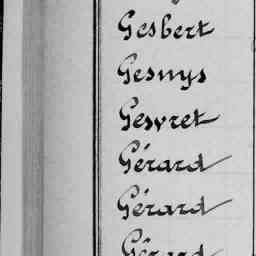 Gesbert
Gesnys
Gesvret
Gérard
Gérard
Gérard